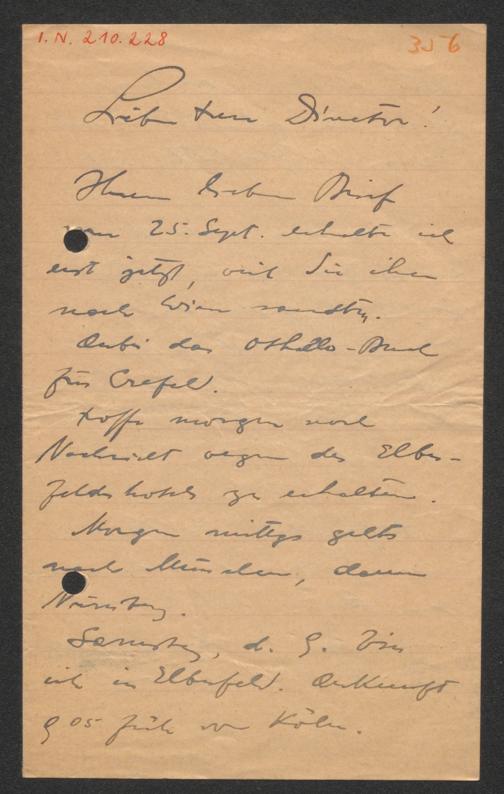 I.N. 210.228
356
Lieber Herr Director!
Ihren lieben Brief
vom 25. Sept. erhalte ich
erst jetzt, weil Sie ihn
nach Wien sandten.
Anbei das Othello-Buch
für Crefeld.
Hoffe morgen noch
Nachricht wegen des Elber-
felder hotels zu erhalten.
Morgen mittags gehts
nach München, dann
Nürnberg.
Samstag, d. 9. bin
ich in Elberfeld. Ankunft
9 05 früh von Köln.